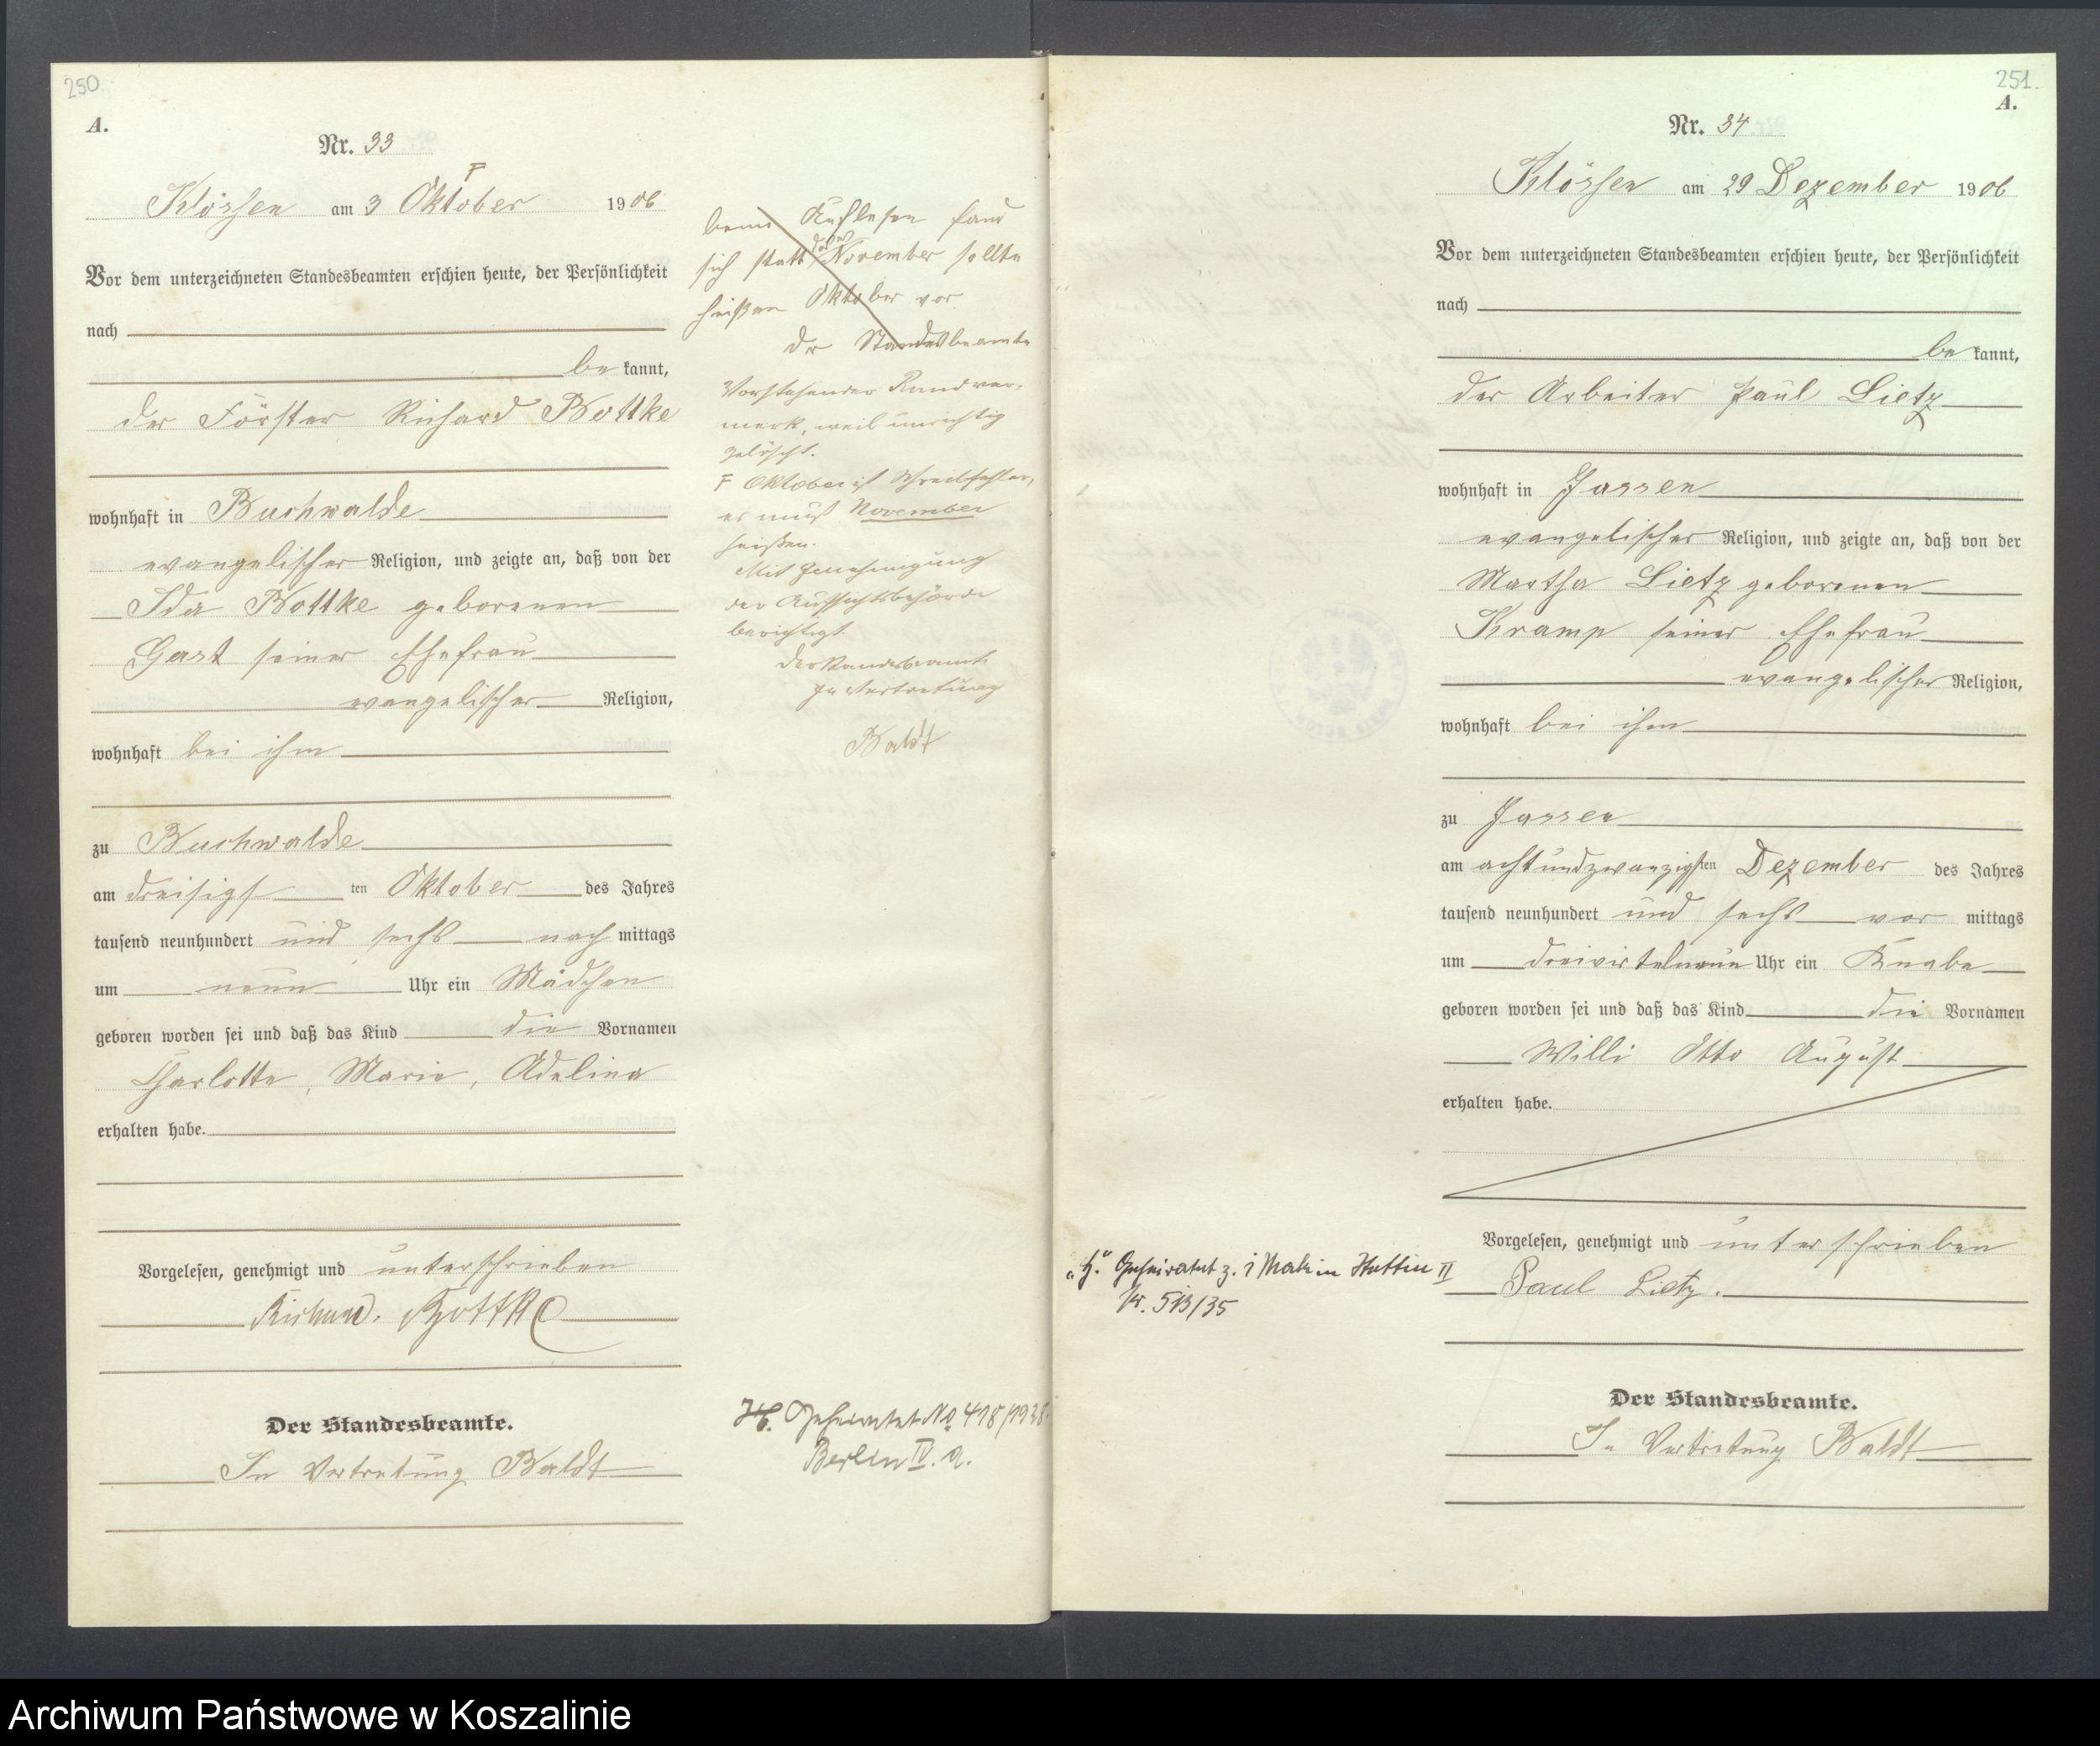 250.
A.
Nr. 33
F
Klössen am 3 Oktober 1906
Vor dem unterzeichneten Standesbeamten erschien heute, der Persönlichkeit
nach
be kannt,
der Förster Richard Bottke
wohnhaft in Buchwalde
evangelischer Religion, und zeigte an, daß von der
Ida Bottke geborenen
Gast seiner Ehefrau
evangelischer Religion,
wohnhaft bei ihm
zu Buchwalde
am dreisigs ten Oktober des Jahres
tausend neunhundert und sechs nach mittags
um neun Uhr ein Mädchen
geboren worden sei und daß das Kind die Vornamen
Charlotte, Marie, Adeline
erhalten habe.
Vorgelesen, genehmigt und unterschrieben
Richard. Bottke
Der Standesbeamte.
In Vertretung Baldt
beim Auflesen fand
sich statt November sollte
heißen Oktober vor.
Der Standesbeamte
Vorstehender Randver-
merk, weil unrichtig
gelöscht.
F Oktober ist Schreibfehler,
es muß November
heißen.
Mit Genehmigung
der Aufsichtsbehörde
berichtigt.
Der Standesbeamte
In Vertretung
Baldt
Geheiratet No 418/1928.
Berlin IV. a.
251.
A.
Nr. 34
Klössen am 29 Dezember 1906
Vor dem unterzeichneten Standesbeamten erschien heute, der Persönlichkeit
nach
be kannt,
der Arbeiter Paul Lietz
wohnhaft in Jassen
evangelischer Religion, und zeigte an, daß von der
Martha Lietz geborenen
Kramp seiner Ehefrau
evangelischer Religion,
wohnhaft bei ihm
zu Jassen
am achtundzwanzigsten Dezember des Jahres
tausend neunhundert und sechs vor mittags
um dreivirtelneun Uhr ein Knabe
geboren worden sei und daß das Kind die Vornamen
Willi Otto August
erhalten habe.
Vorgelesen, genehmigt und unterschrieben
Paul Lietz.
Der Standesbeamte.
In Vertretung Baldt
"H." Geheiratet z. 1 Mal in Stettin II
Nr. 513/35
Archiwum Państwowe w Koszalinie